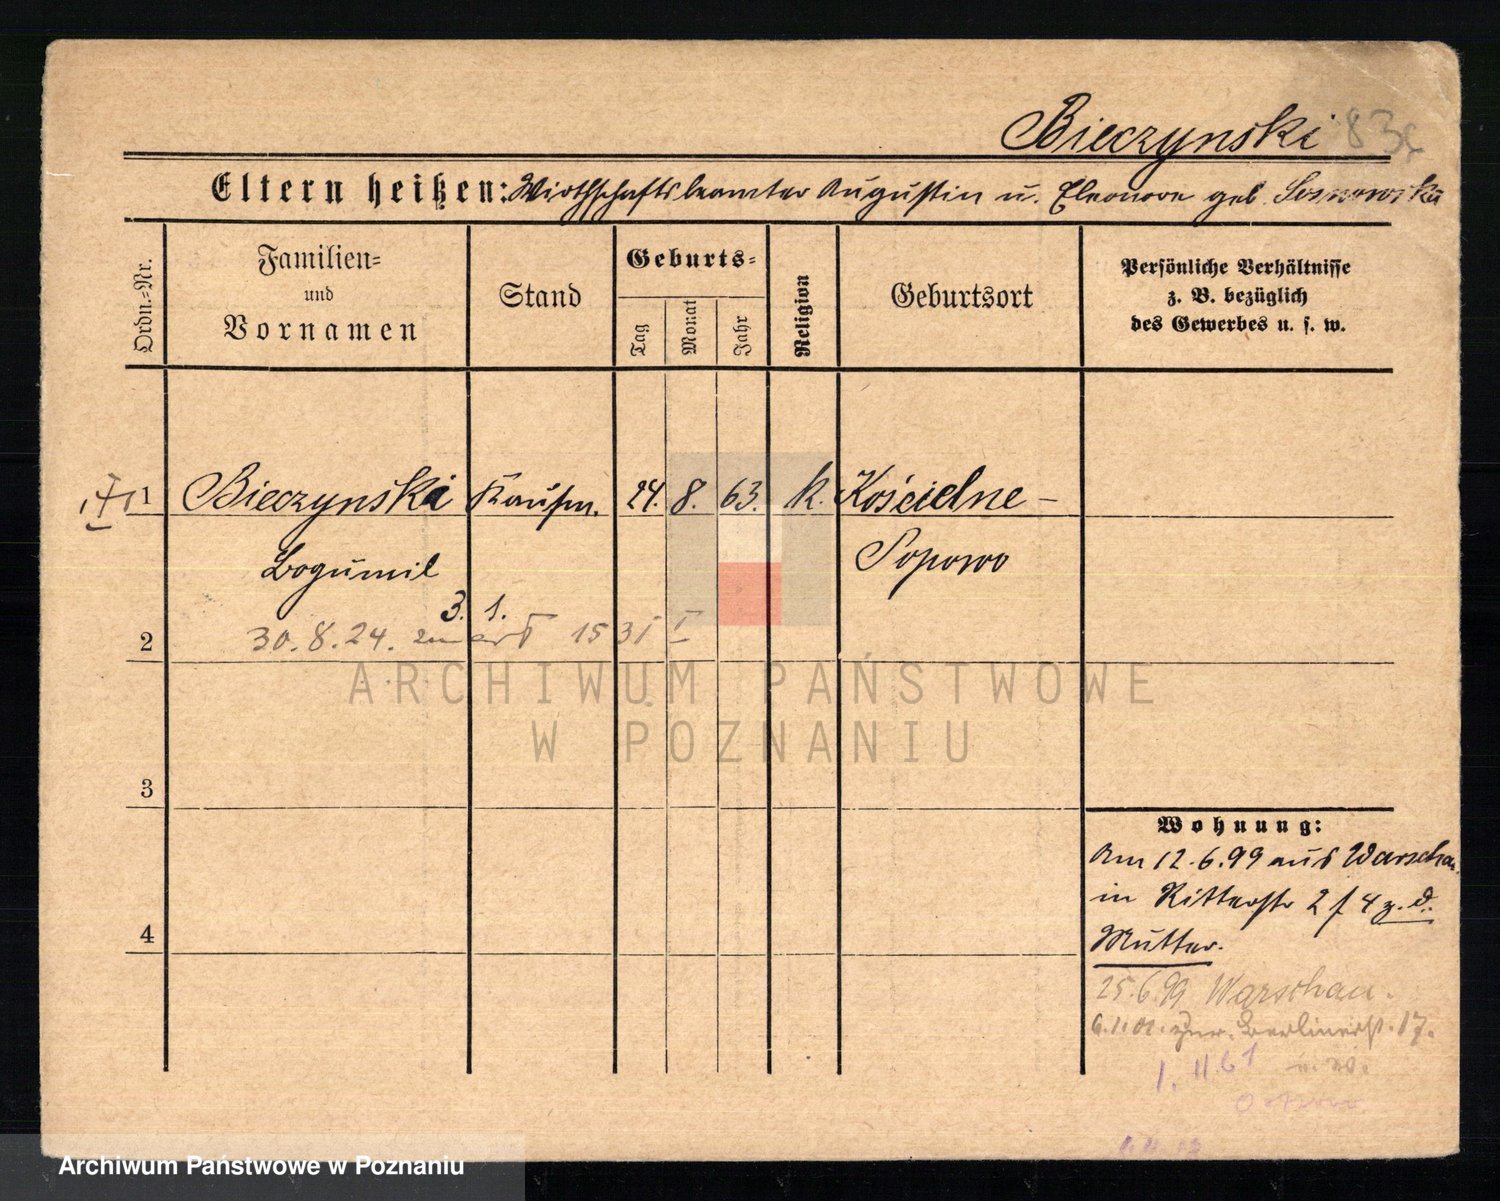 Bieczynski 83
Eltern heißen: Wirthschaftsbeamter Augustin u. Eleonore geb. Sosnowska
Ordn.-Nr.
Familien-
und
Vornamen
Stand
Geburts-
Tag
Monat
Jahr
Religion
Geburtsort
Persönliche Verhältnisse
z. B. bezüglich
des Gewerbes u. s. w.
1 Bieczynski Kaufm. 24. 8. 63. k. Kościelne-
Bogumil Popowo
3. 1.
2 30. 8. 24. 15
3
4
Wohnung:
Am 12.6.99 aus Warschau
in Ritterstr 2 f 4 z. d.
Mutter.
25.6.99 Warschau.
6.1.01. zur. Berlinerstr. 17.
1.
ARCHIWUM PAŃSTWOWE
W POZNANIU
Archiwum Państwowe w Poznaniu